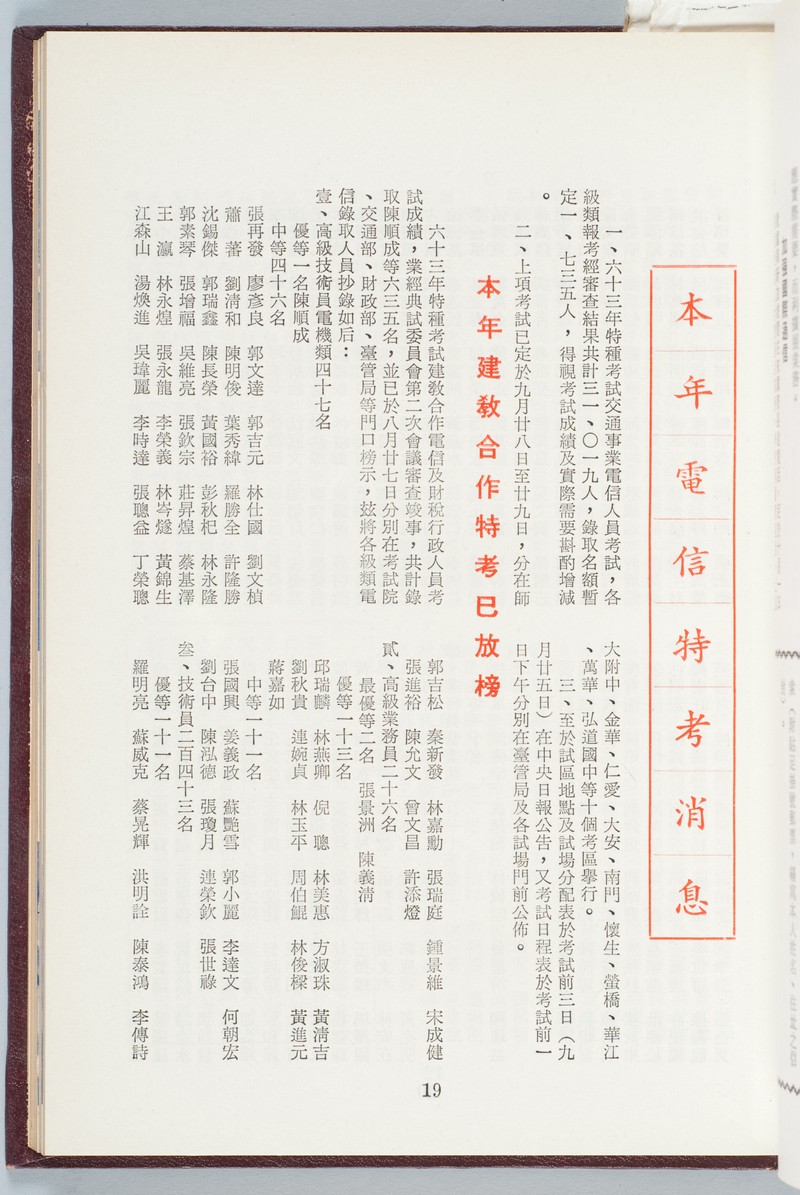 本年電信特考消息
一、六十三年特種考試交通事業電信人員考試，各
級類報考經審查結果共計三一、〇一九人，錄取名額暫
定一、七三五人，得視考試成績及實際需要斟酌增減
。
二、上項考試已定於九月廿八日至廿九日，分在師
大附中、金華、仁愛、大安、南門、懷生、螢橋、華江
、萬華、弘道國中等十個考區舉行。
三、至於試區地點及試場分配表於考試前三日（九
月廿五日）在中央日報公告，又考試日程表於考試前一
日下午分別在臺管局及各試場門前公佈。
本年建教合作特考已放榜
六十三年特種考試建教合作電信及財稅行政人員考
試成績，業經典試委員會第二次會議審查竣事，共計錄
取陳順成等六三五名，並已於八月廿七日分別在考試院
、交通部、財政部、臺管局等門口榜示，茲將各級類電
信錄取人員抄錄如后：
壹、高級技術員電機類四十七名
優等一名陳順成
中等四十六名
張再發 廖彥良 郭文達 郭吉元 林仕國 劉文楨
蕭蕃 劉清和 陳明俊 葉秀緯 羅勝全 許隆勝
沈錫傑 郭瑞鑫 陳長榮 黃國裕 彭秋杞 林永隆
郭素琴 張增福 吳維亮 張欽宗 莊昇煌 蔡基澤
王瀛 林永煌 張永龍 李榮義 林岑燧 黃錦生
江森山 湯煥進 吳瑋麗 李時達 張聰益 丁榮聰
郭吉松 秦新發 林嘉勳 張瑞庭 鍾景維 宋成健
張進裕 陳允文 曾文昌 許添燈
貳、高級業務員二十六名
最優等二名 張景洲 陳義清
優等一十三名
邱瑞麟 林燕卿 倪聰 林美惠 方淑珠 黃清吉
劉秋貴 連婉貞 林玉平 周伯鯤 林俊樑 黃進元
蔣嘉如
中等一十一名
張國興 姜義政 蘇艷雪 郭小麗 李達文 何朝宏
劉台中 陳泓德 張瓊月 連榮欽 張世祿
叁、技術員二百四十三名
優等一十一名
羅明亮 蘇威克 蔡晃輝 洪明詮 陳泰鴻 李傳詩
19